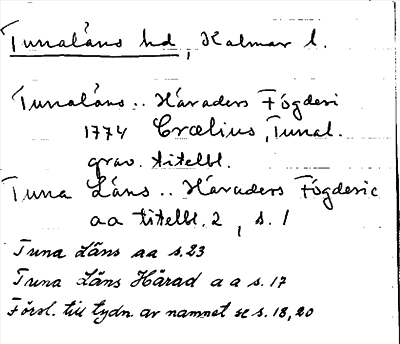 Tunaläns hd, Kalmar l.
Tunaläns .. Häraders Fögderi
1774 Crælius, Tunal.
grav. titelbl.
Tuna Läns .. Häraders Fögderie
aa titelbl. 2, s. 1
Tuna Läns aa s. 23
Tuna Läns Härad a a s. 17
Försl. till tydn. av namnet se s. 18, 20